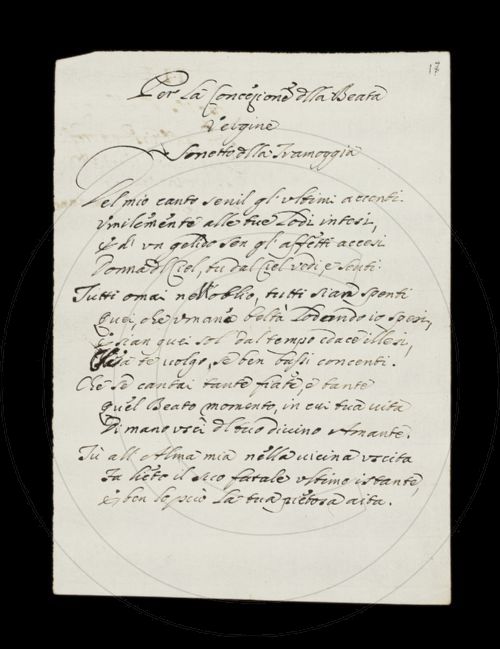 17
Per la Concezione dlla Beata
Vergine
Sonetto dlla Tramoggia
Del mio canto senil gl' vltimi accenti
Vmilemente alle tue Lodi intesi,
E d' vn gelido sen gl' affetti accesi
Donna dl Ciel, tu dal Ciel vedi e senti.
Tutti omai nell' oblio, tutti sian spenti
Quei, che vmana beltà Lodando io spesi,
E sian quei sol dal tempo edace illesi,
a te volgo, se ben bassi concenti.
Che se cantai tante fiate, e tante
quel Beato momento, in cui tua vita
Di mano vscì dl tuo divino Amante.
Tu all' Alma mia nella vicina vscita
Fa lieto il suo fatale vltimo istante,
E ben lo può la tua pietosa aita.